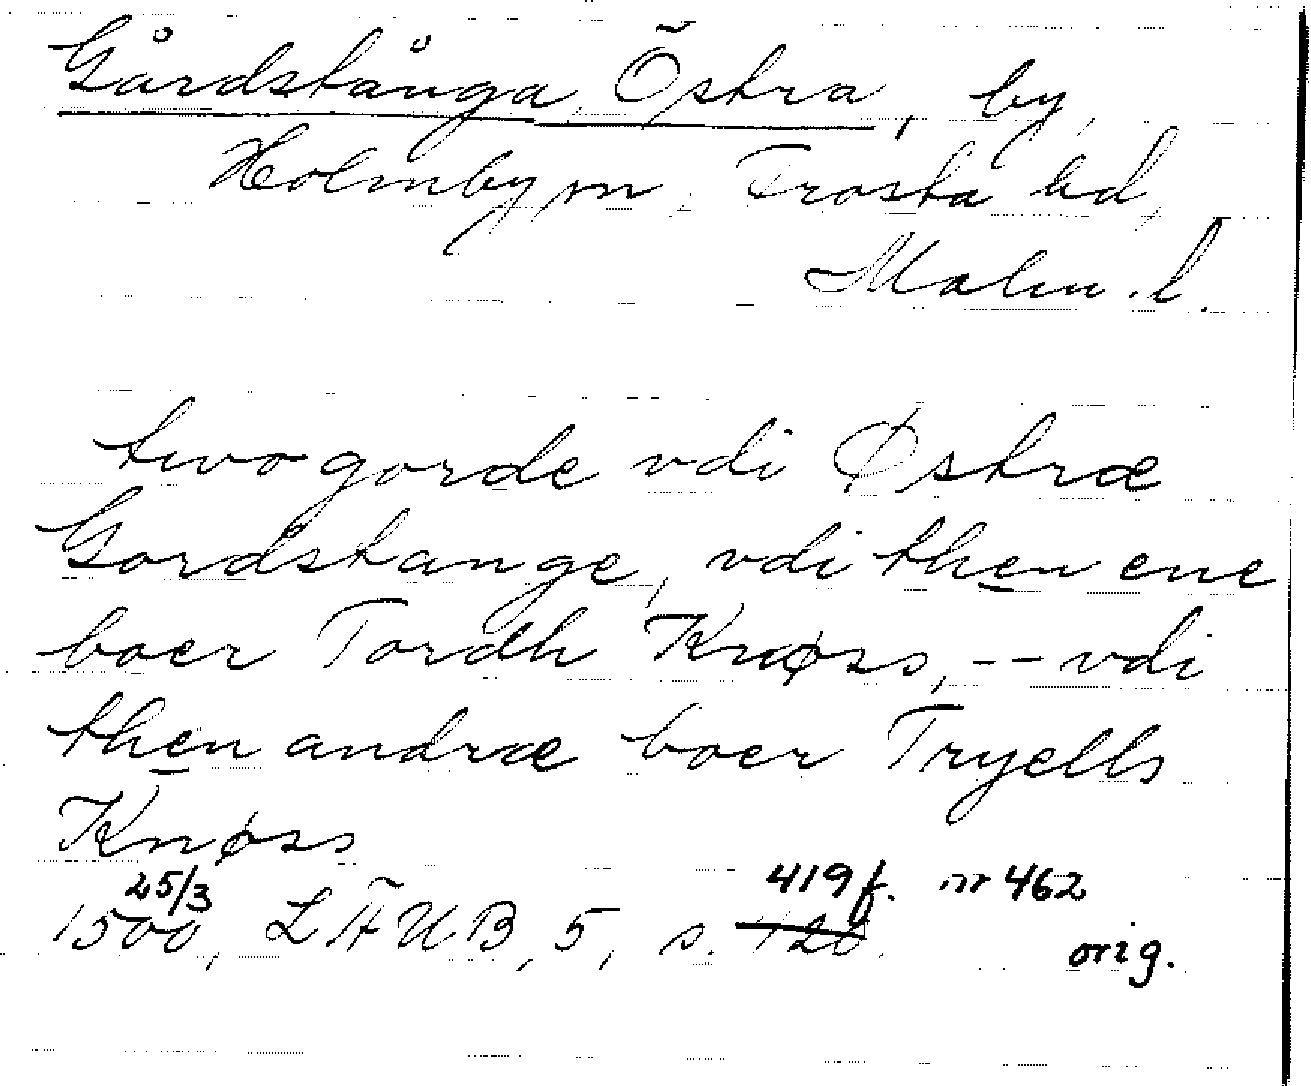 Gårdstånga, Östra, by,
Holmby sn. Frosta hd,
Malm. l.
two gorde vdi Østræ
Gordstange, vdi then ene
boer Tordh Knøss, -- vdi
then andræ boer Tryells
Knøss
25/3 419f. nr 462
1500, LÄUB, 5, s. 420. orig.